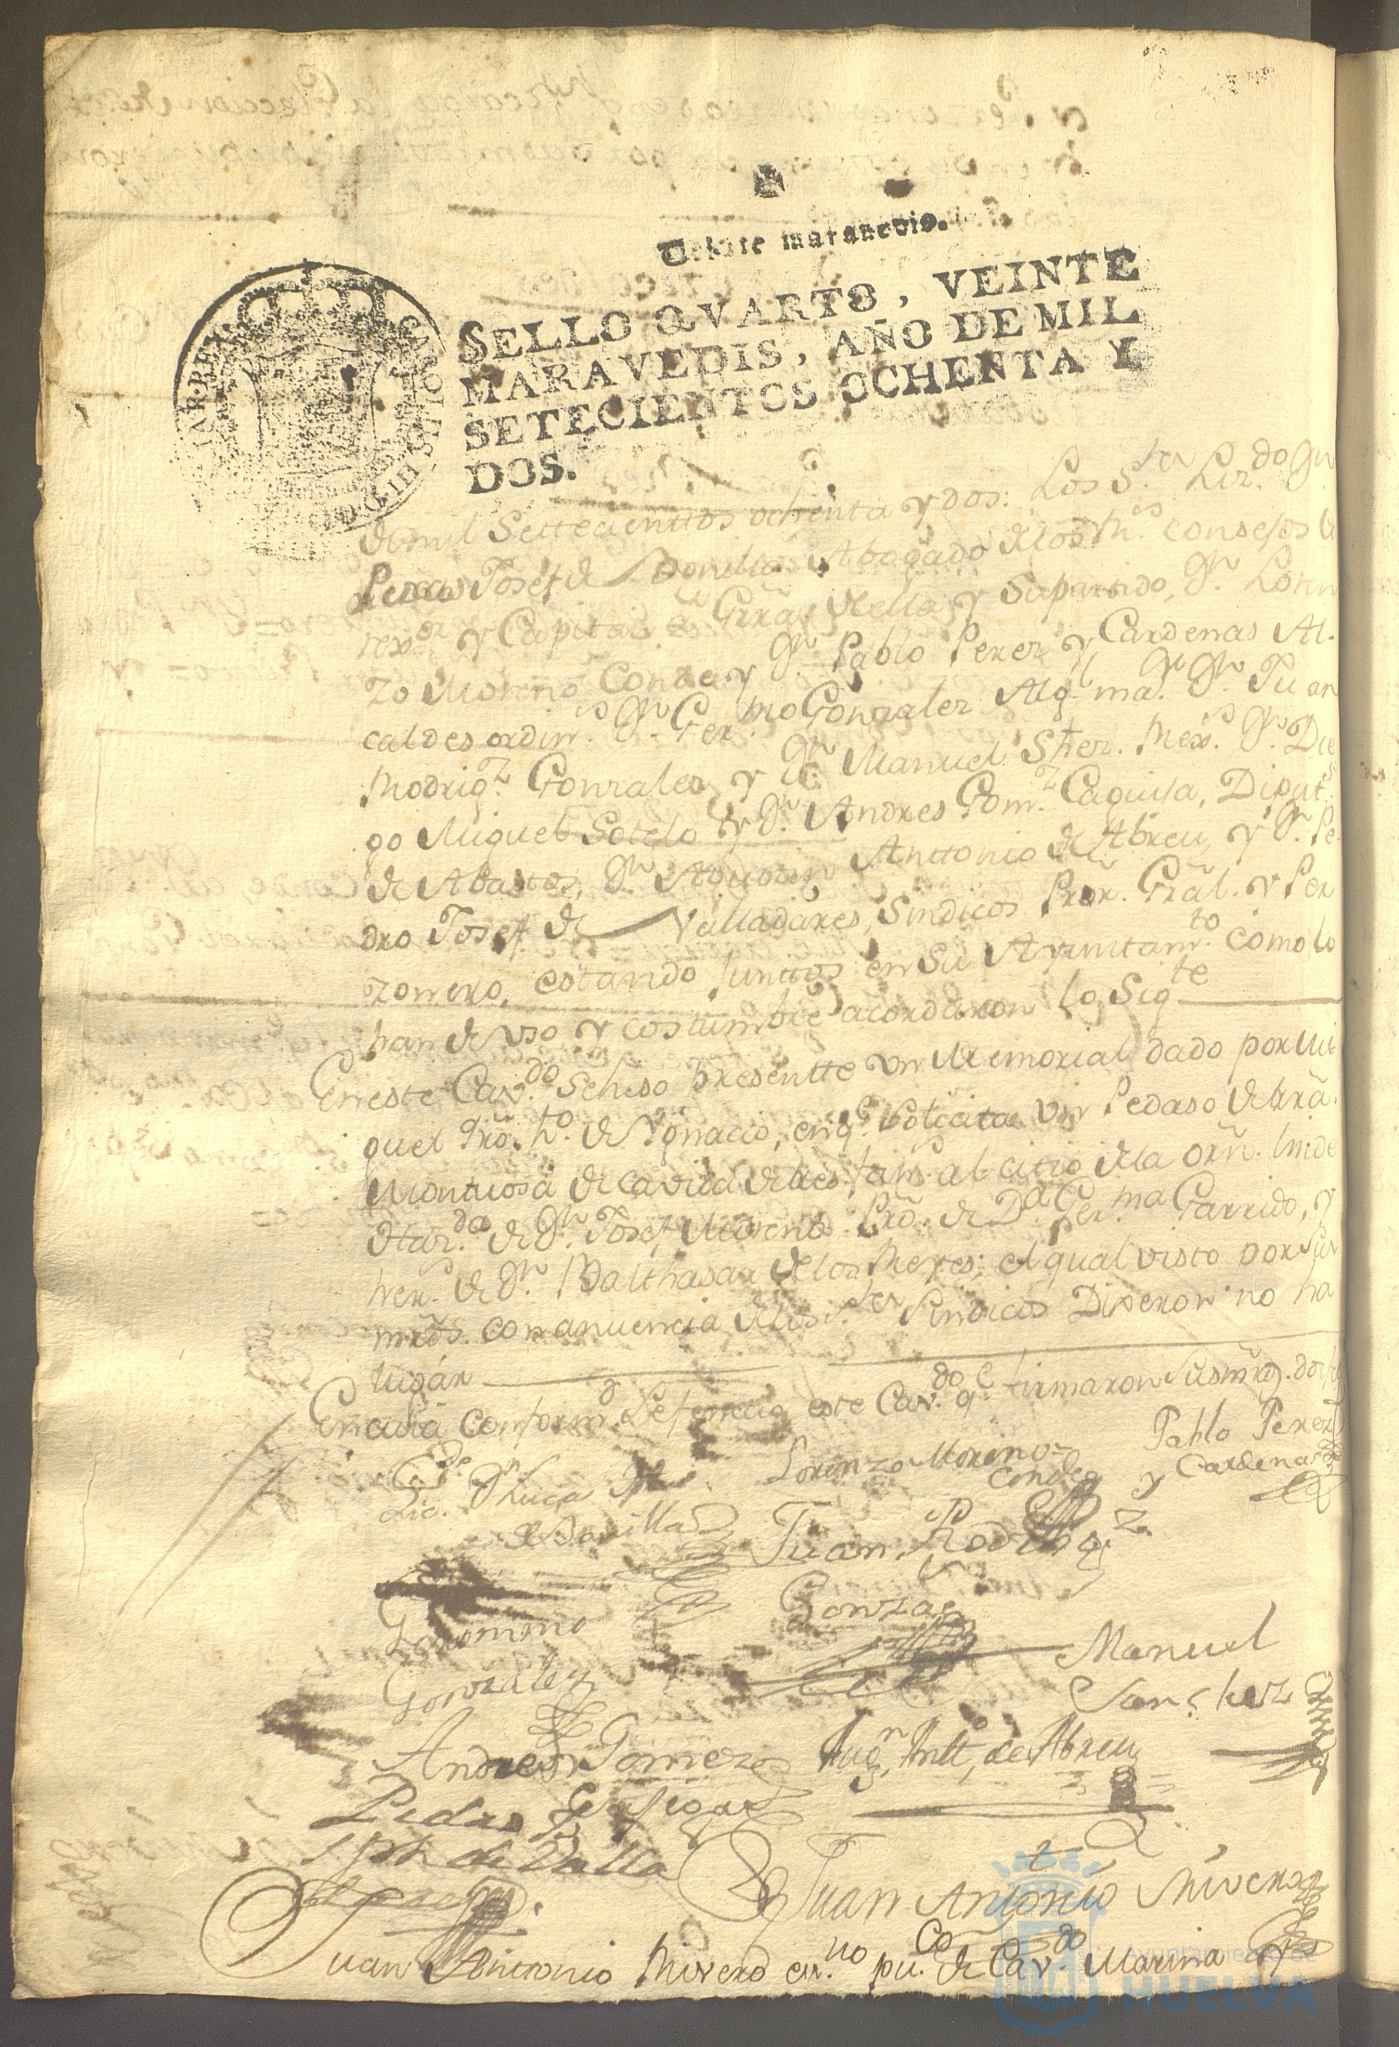 Veinte maravedis.
SELLO QVARTO, VEINTE
MARAVEDIS, AÑO DE MIL
SETECIENTOS OCHENTA Y
DOS.
de mil Settecienttos ochenta y dos: Los S.res Liz.do Dn
Josef de Bonilla Abogado de los Rs. Consejos
rexor y Capitan a Grã de ella y Supartido, Dn. Loren
zo Moreno Conde y Dn Pablo Perez y Cardenas Al-
caldes ordin.s Dn. Ger.mo Gonzalez Alg.l ma.r Dn. Juan
Rodrig.z Gonzalez y Dn Manuel Shez. Rex.s Dn. Die
go Miguel Sotelo y Dn. Andres Gom.z Caquisa, Diput.s
de Abastos, Dn. Agustin Anttonio de Abreu, y Dn. Pe
dro Josef de Valladares, Sindicos Pror. Grãl. y Per
zonero, estando junttos en su Ayuntam.to como lo
han de uso y costumbre acordaron lo Sig.te
En este Cav.do se hiso presentte un Memorial dado por Mi
guel h.o de Ygnacio, en q.e Solicita un Pedaso de trrã.
Montuosa de cavida de tres fan.s al citio de la orñ. linde
de Dn. Josef Moreno Prõ. de D.a Ger.ma Garrido, y
her.s de Dn Balthasar de los Reyes; el qual visto por sus
mrds. con anuencia de los S.res Sindicos Dixeron no ha
lugar
En cuia conform.d Se fenecio este Cav.do q.e firmaron Sus mrds. doi fe
Lic. Dn
de Bonilla
Lorenzo Moreno
Conde
Pablo Perez
y Cardenas
Juan Rodrig.z
Gonzalez
Geronimo
Gonzalez
Manuel
Sanchez
Andres Gomez
Aug.n Antt.o de Abreu
Pedro
Jph de Valla
dares
Juan Antonio Rivero
Juan Antonio Rivero es.no pu.co de Cav.do Marina
Ayuntamiento de
HUELVA